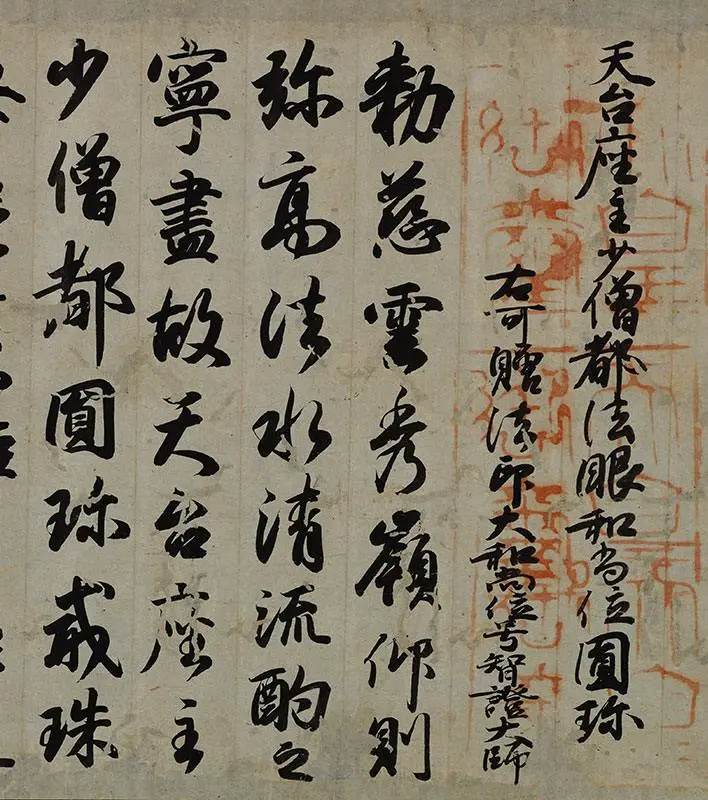 天台座主少僧都法眼和尚位圓珎
右可贈法印大和尚位号智證大師
勅慈雲秀嶺仰則
弥高法水清流酌之
寧盡故天台座主
少僧都圓珎戒珠